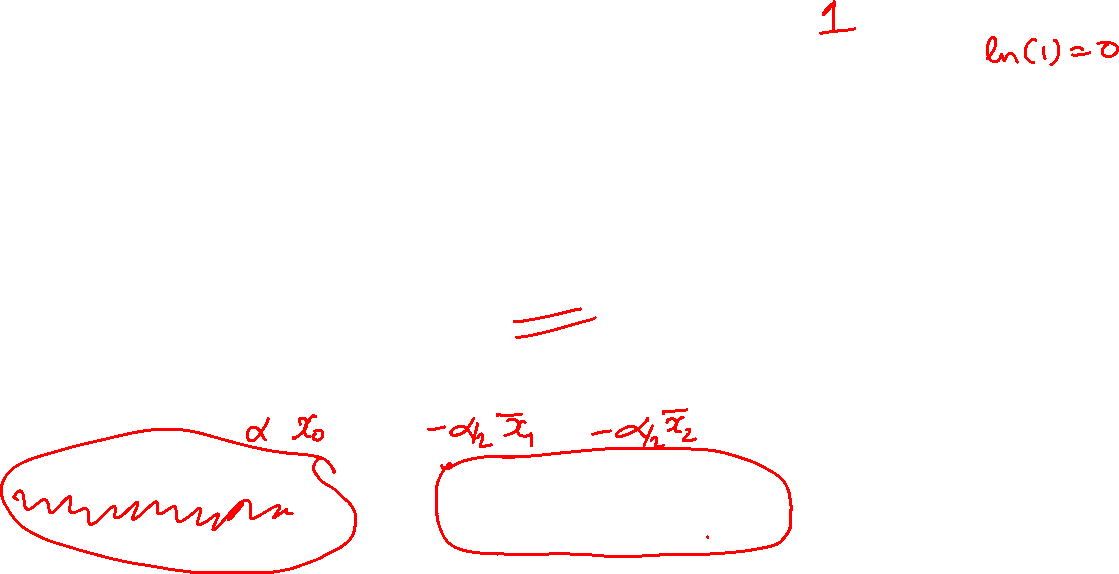 1
ln(1)=0
=
α x₀ -α/2 x̄₁ -α/2 x̄₂